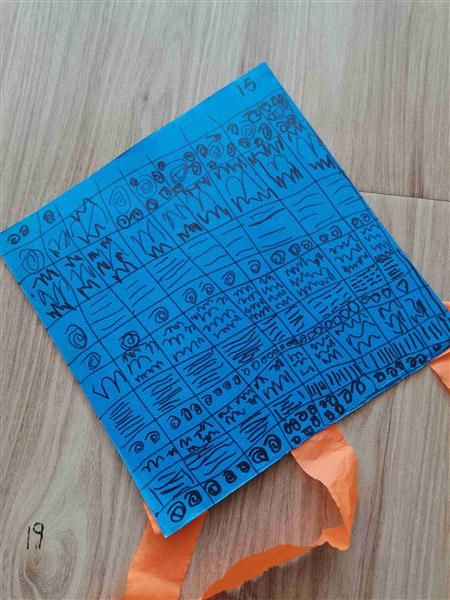 15
19